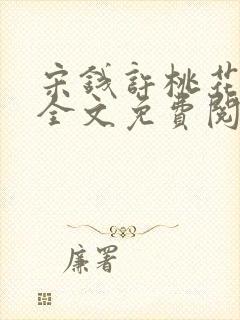 宋錢許桃花
全文免費閱
廉署